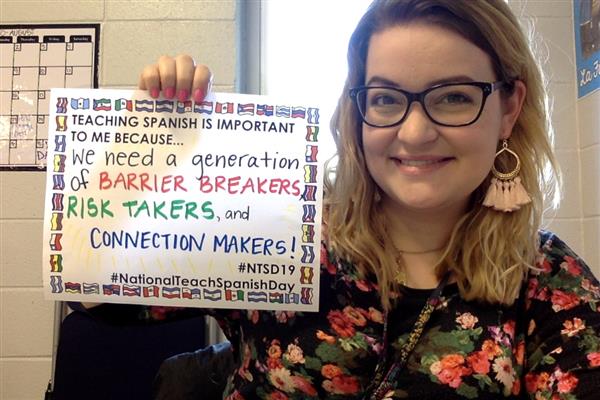 TEACHING SPANISH IS IMPORTANT
TO ME BECAUSE...
We need a generation
of BARRIER BREAKERS,
RISK TAKERS, and
CONNECTION MAKERS!
#NTSD19
#NationalTeachSpanishDay
Thursday Friday Saturday
La